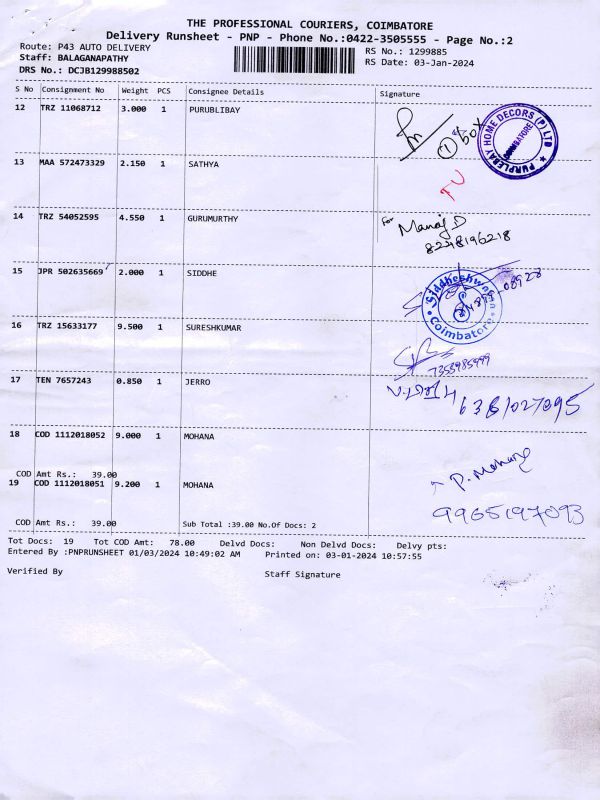 THE PROFESSIONAL COURIERS, COIMBATORE
Delivery Runsheet - PNP - Phone No.:0422-3505555 - Page No.:2
Route: P43 AUTO DELIVERY RS No.: 1299885
Staff: BALAGANAPATHY RS Date: 03-Jan-2024
DRS No.: DCJB129988502
S No Consignment No Weight PCS Consignee Details Signature
12 TRZ 11068712 3.000 1 PURUBLIBAY
1 box
PURPLEBAY HOME DECORS (P) LTD
COIMBATORE
13 MAA 572473329 2.150 1 SATHYA
14 TRZ 54052595 4.550 1 GURUMURTHY
For Manoj D
8248196218
15 JPR 502635669 2.000 1 SIDDHE
Siddheshwara
Coimbatore
16 TRZ 15633177 9.500 1 SURESHKUMAR
7353985999
17 TEN 7657243 0.850 1 JERRO
6381027095
18 COD 1112018052 9.000 1 MOHANA
COD Amt Rs.: 39.00
19 COD 1112018051 9.200 1 MOHANA
P. Mohana
9965197093
COD Amt Rs.: 39.00 Sub Total :39.00 No.Of Docs: 2
Tot Docs: 19 Tot COD Amt: 78.00 Delvd Docs: Non Delvd Docs: Delvy pts:
Entered By :PNPRUNSHEET 01/03/2024 10:49:02 AM Printed on: 03-01-2024 10:57:55
Verified By Staff Signature